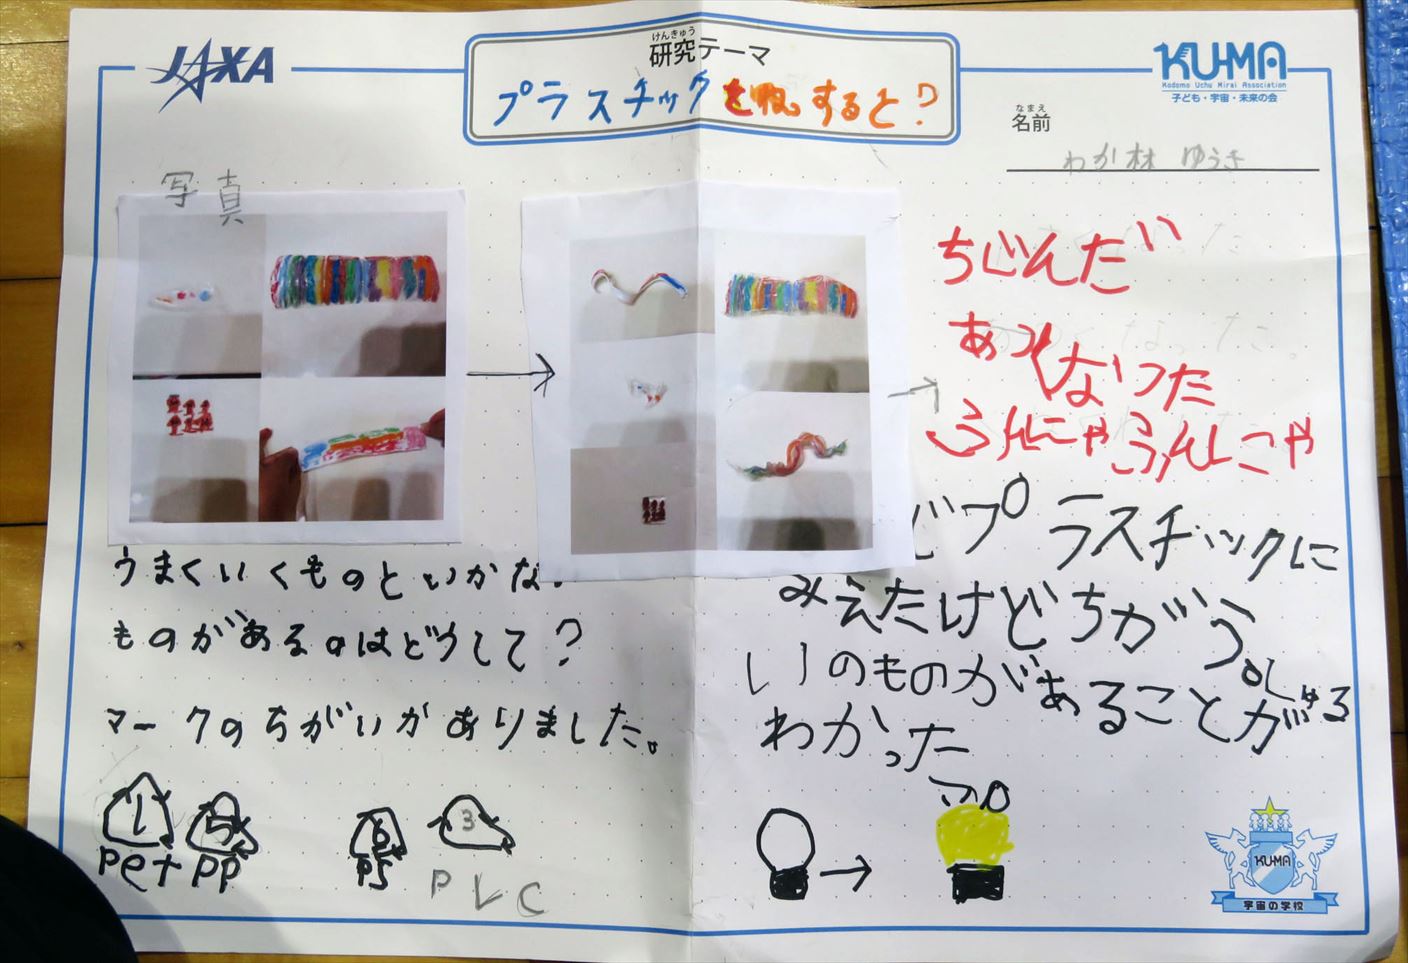 JAXA
けんきゅう
研究テーマ
プラスチックを熱すると?
KU-MA
Kodomo Uchu Mirai Association
子ども・宇宙・未来の会
なまえ
名前
わか林 ゆうき
写真
ちぢんだ
あつくなった
ふんにゃふんにゃ
うまくいくものといかな
ものがあるのはどうして?
マークのちがいがありました。
1 5 6 3
Pet PP PS PVC
じプラスチックに
みえたけどちがう
しゅる
いのものがあることが
わかった
KU-MA
宇宙の学校